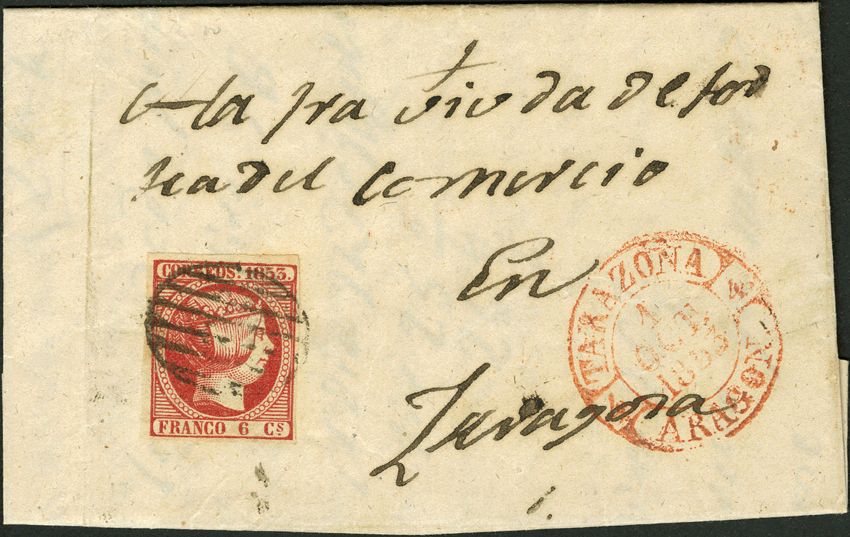 A la Sra Viuda de Jod
rea del Comercio
En
Zaragoza
CORREOS. 1853.
FRANCO 6 Cs
TARAZONA
1
OCT
1853
ARAGON